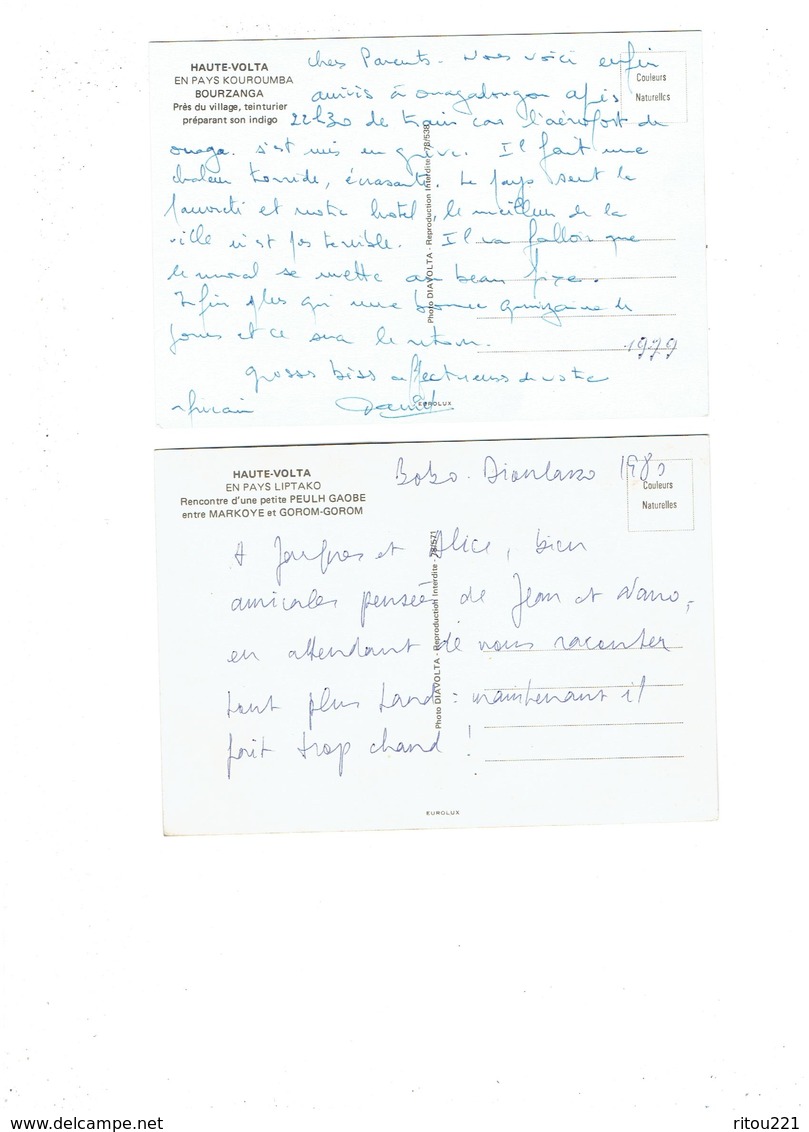 HAUTE-VOLTA
EN PAYS KOUROUMBA
BOURZANGA
Près du village, teinturier
préparant son indigo
Couleurs
Naturelles
chers Parents - Nous voici enfin
arrivés à ouagadougou après
22h30 de train car l'aéroport de
ouaga. s'est mis en grève. Il fait une
chaleur torride, écrasante. Le pays sent la
pauvreté et notre hotel, le meilleur de la
ville n'est pas terrible. Il va falloir que
le moral se mette au beau fixe.
Enfin plus qu'une bonne quinzaine de
jours et ce sera le retour.
1979
grosses bises affectueuses de votre
africain
Photo DIAVOLTA - Reproduction Interdite - 78/538
EUROLUX
HAUTE-VOLTA
EN PAYS LIPTAKO
Rencontre d'une petite PEULH GAOBE
entre MARKOYE et GOROM-GOROM
Bobo. Dioulasso 1980
Couleurs
Naturelles
A Jacques et Alice, bien
amicales pensées de Jean et Nano,
en attendant de vous raconter
tout plus tard : maintenant il
fait trop chaud !
Photo DIAVOLTA - Reproduction Interdite - 78/571
EUROLUX
www.delcampe.net
ritou221